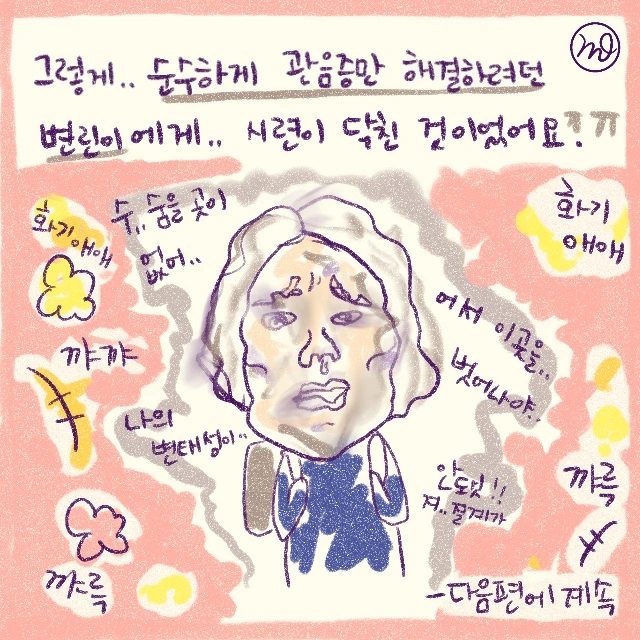 그렇게.. 순수하게 관음증만 해결하려던
변린이에게.. 시련이 닥친 것이었어요? ㄲ
수.. 숨을 곳이
없어..
화기
애애
화기
애애
어서 이곳을..
벗어나야..
꺄꺄
나의
변태성이..
안돼!!
져.. 절계가
꺄륵
꺄륵
-다음편에 계속